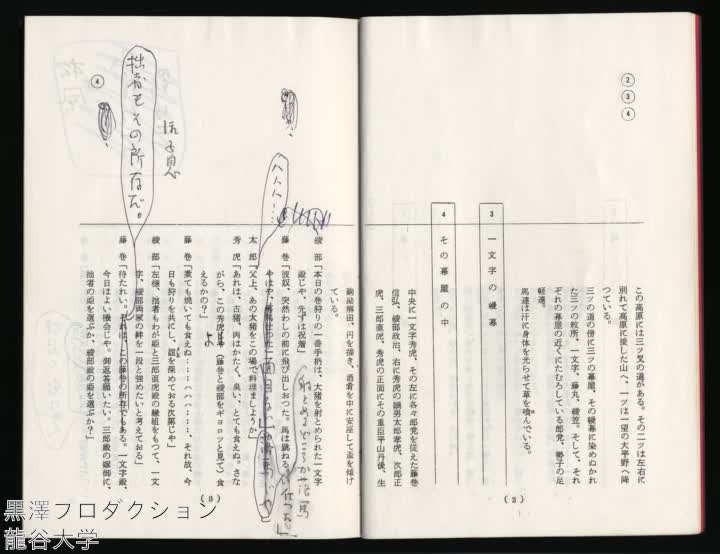 ②
③
④
この高原には三ツ叉の道がある。その二ツは左右に
別れて高原に接した山へ、一ツは一望の大平野へ降
つている。
三ツの道の傍に三ツの幕屋、その幔幕に染めぬかれ
た三ツの紋所、一文字、藤丸、綾笠。そして、それ
ぞれの幕屋の近くにたむろしている郎党、勢子の足
軽達。
馬達は汗に身体を光らせて草を喰んでいる。
3 一文字の幔幕
4 その幕屋の中
中央に一文字秀虎、その左に各々郎党を従えた藤巻
信弘、綾部政治、右に秀虎の嫡男太郎孝虎、次郎正
虎、三郎直虎、秀虎の正面にその重臣平山丹後、生
(2)
駒勘解由、円を描き、酒肴を中に安座して盃を傾け
ている。
綾部「本日の巻狩りの一番手柄は、大猪を射とめられた一文字
殿じや、先ずは祝着」
藤巻「彼奴、突然わしの前に飛び出しおつた。馬は跳ねる、
ハハハハ……
太郎「父上、あの大猪をこの場で料理ましようか」
秀虎「あれは、古猪、肉はかたく、臭い、とても食えぬ。さな
がら、この秀虎
よ
(藤巻と綾部をギョロッと見て)食
えるかの?」
藤巻「煮ても焼いても食えぬ……ハハハ……、それ故、今
日も狩りを共にし、誼を深めておる次第じや」
綾部「左様、拙者もわが姫と三郎直虎殿の縁組をもつて、一文
字、綾部両家の絆を一段と強めたいと考えておる」
藤巻「待たれい、それは、この藤巻の所存でもある。一文字殿、
今日はよい機会じや。御返答願いたい。三郎殿の嫁御に、
拙者の姫を選ぶか、綾部殿の姫を選ぶか?」
拙者もその所存だ。
④
(3)
黒澤フロダクション
龍谷大学